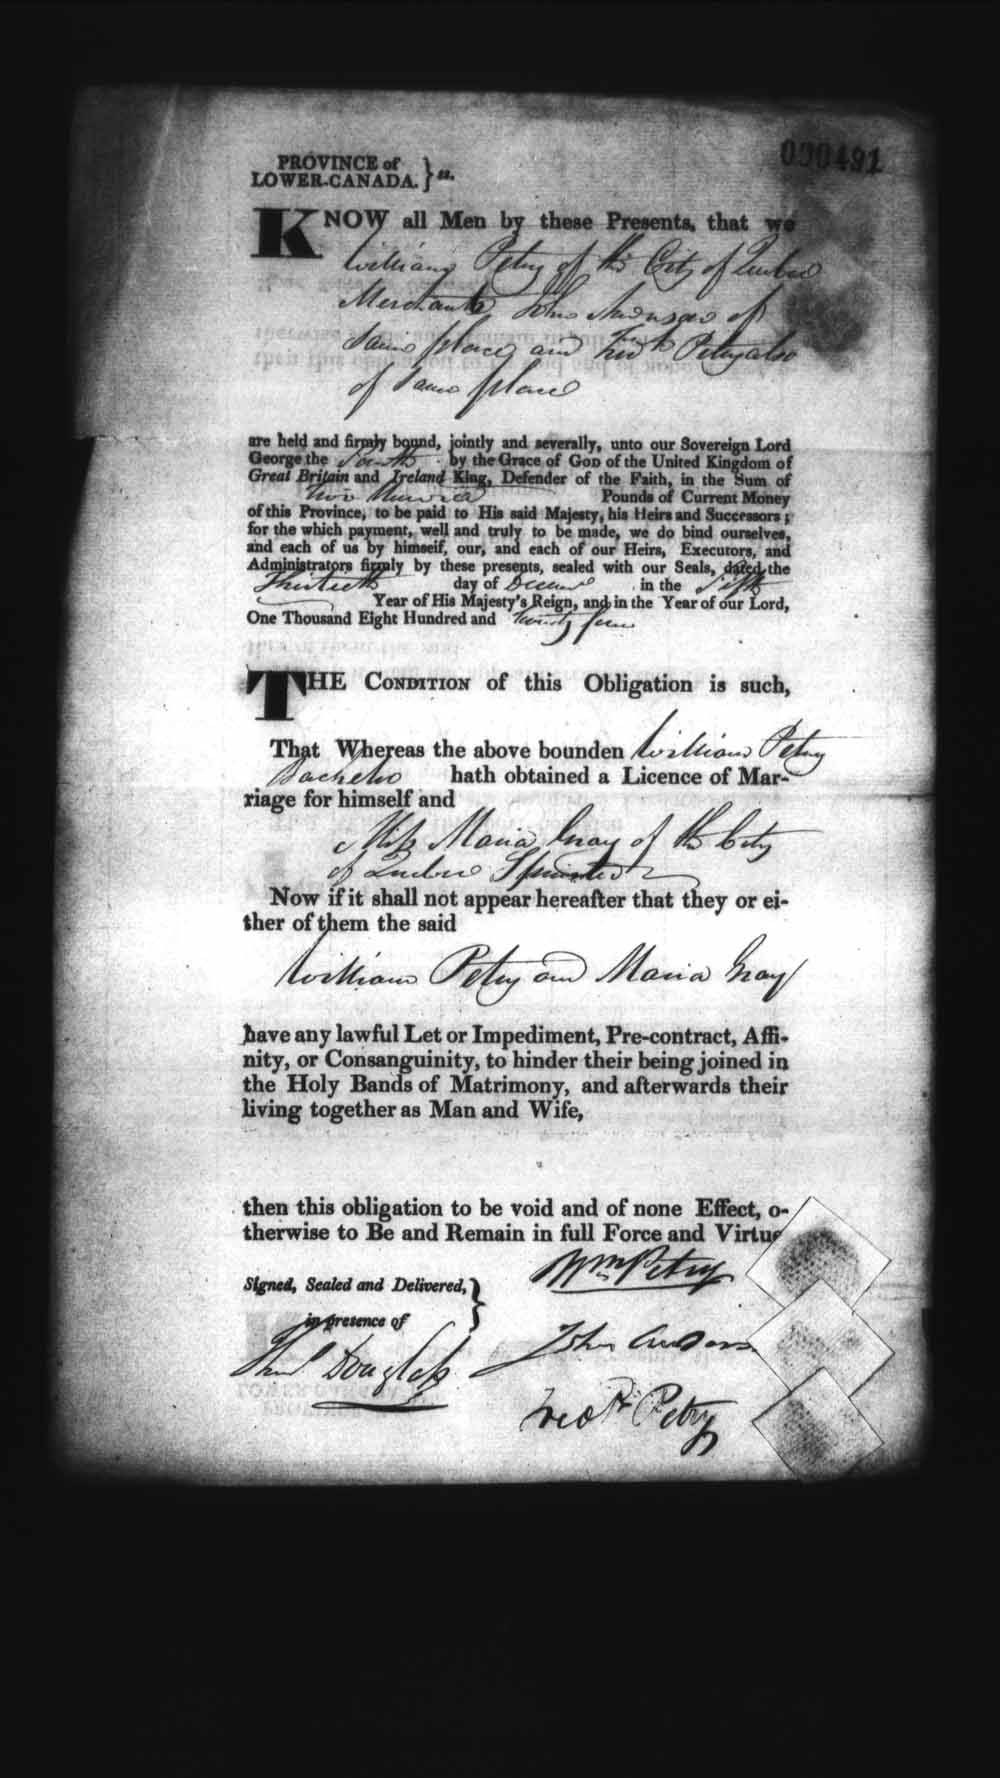 000491
PROVINCE of
LOWER-CANADA. } ss.
KNOW all Men by these Presents, that we
William Petry of the City of Quebec
Merchant John Anderson of
same place and Fredk Petry also
of same place
are held and firmly bound, jointly and severally, unto our Sovereign Lord
George the Fourth by the Grace of GOD of the United Kingdom of
Great Britain and Ireland King, Defender of the Faith, in the Sum of
Two Hundred Pounds of Current Money
of this Province, to be paid to His said Majesty, his Heirs and Successors;
for the which payment, well and truly to be made, we do bind ourselves,
and each of us by himself, our, and each of our Heirs, Executors, and
Administrators firmly by these presents, sealed with our Seals, dated the
Thirtieth day of Decem in the Fifth
Year of His Majesty's Reign, and in the Year of our Lord,
One Thousand Eight Hundred and twenty four
THE CONDITION of this Obligation is such,
That Whereas the above bounden William Petry
Bachelor hath obtained a Licence of Mar-
riage for himself and
Miss Maria Gray of the City
of Quebec Spinster
Now if it shall not appear hereafter that they or ei-
ther of them the said
William Petry and Maria Gray
have any lawful Let or Impediment, Pre-contract, Affi-
nity, or Consanguinity, to hinder their being joined in
the Holy Bands of Matrimony, and afterwards their
living together as Man and Wife,
then this obligation to be void and of none Effect, o-
therwise to Be and Remain in full Force and Virtue
Wm Petry
Signed, Sealed and Delivered, }
in presence of
John Anderson
Douglass
Fredk Petry